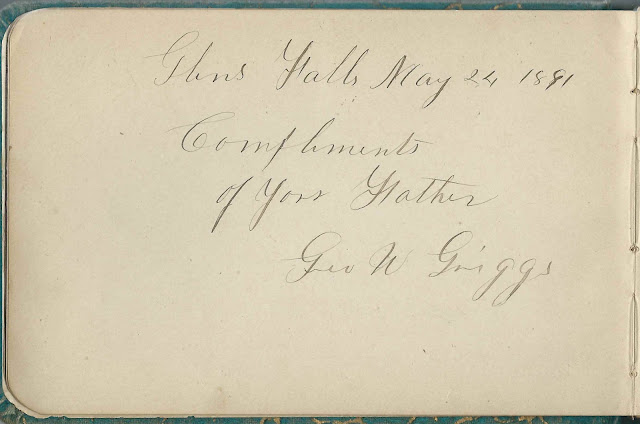 Glens Falls May 24 1891
Compliments
of Your Father
Geo W Griggs